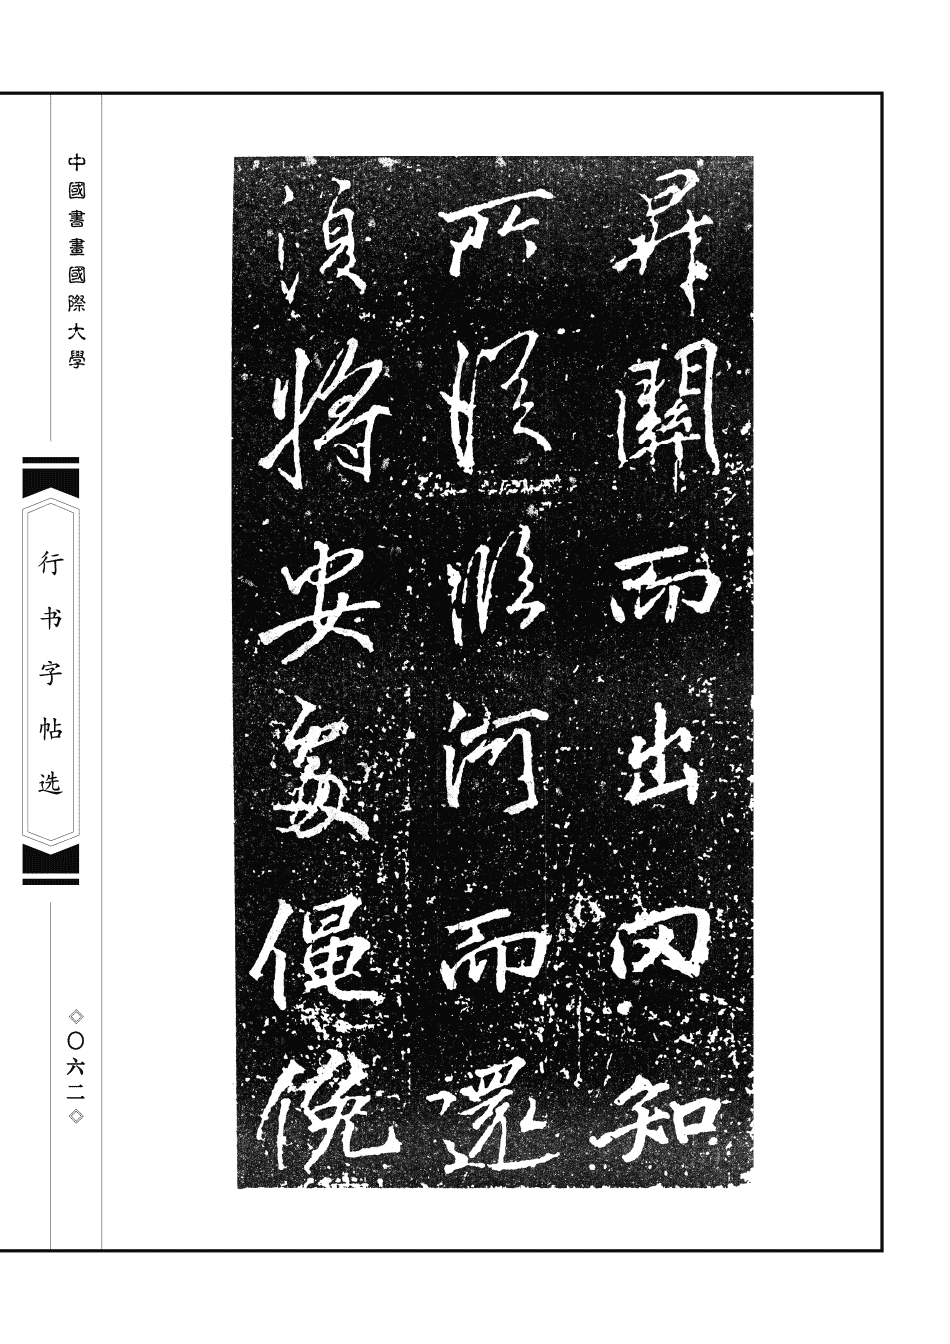 昇關而出罔知
所從臨河而還
須將安處僶俛
中國書畫國際大學
行书字帖选
〇六二